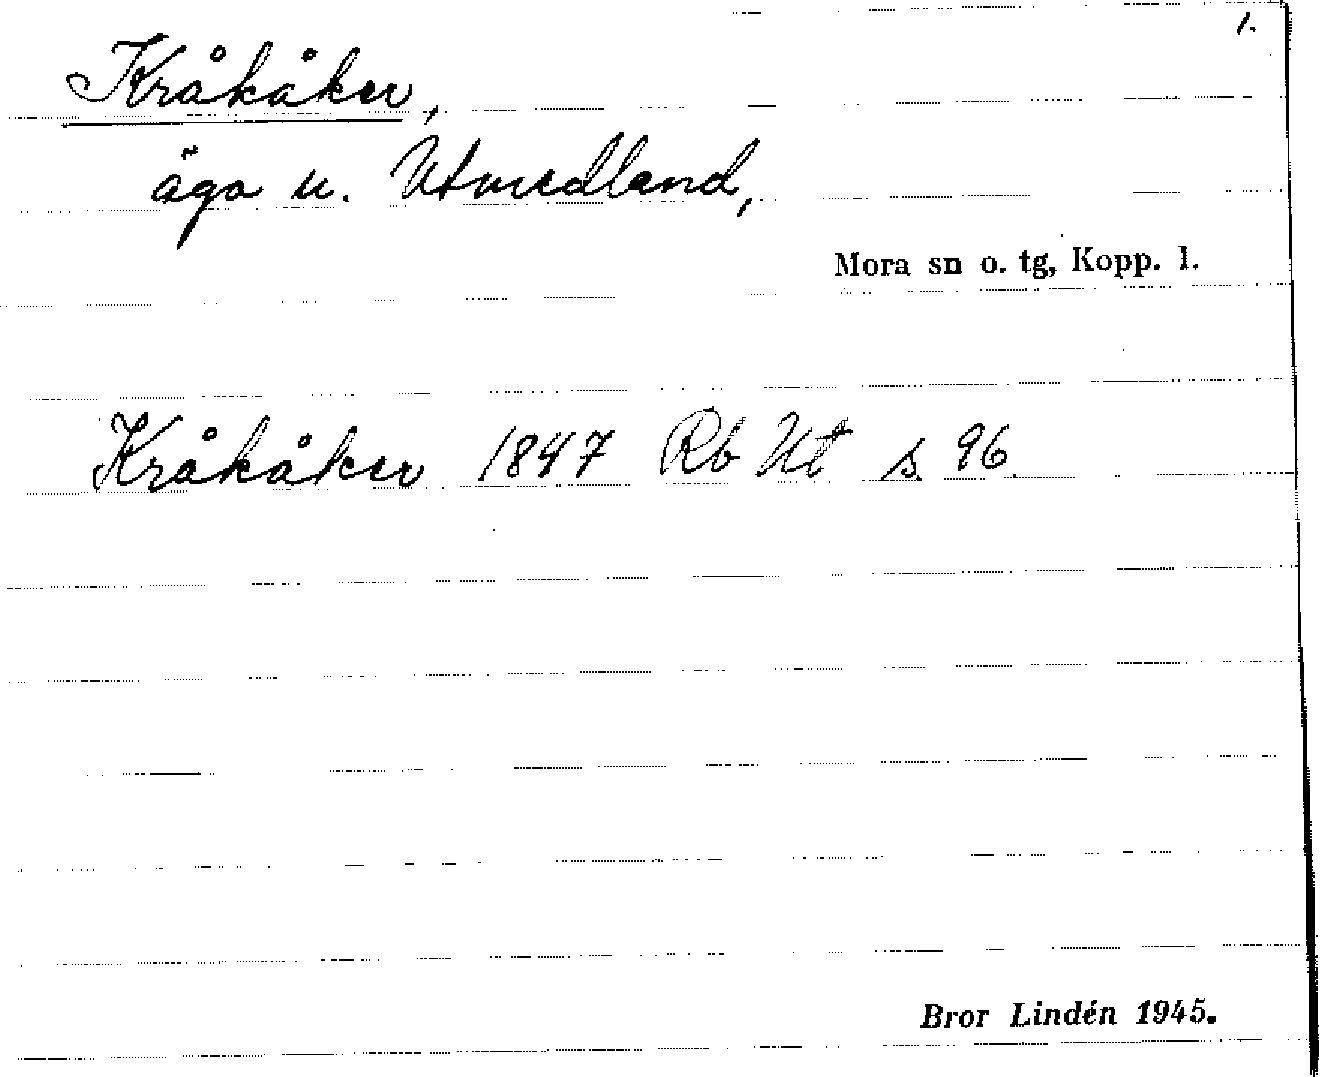 1.
Kråkåker,
äga u. Utmedland,
Mora sn o. tg, Kopp. l.
Kråkåker 1847 Rb Ut s. 96.
Bror Lindén 1945.